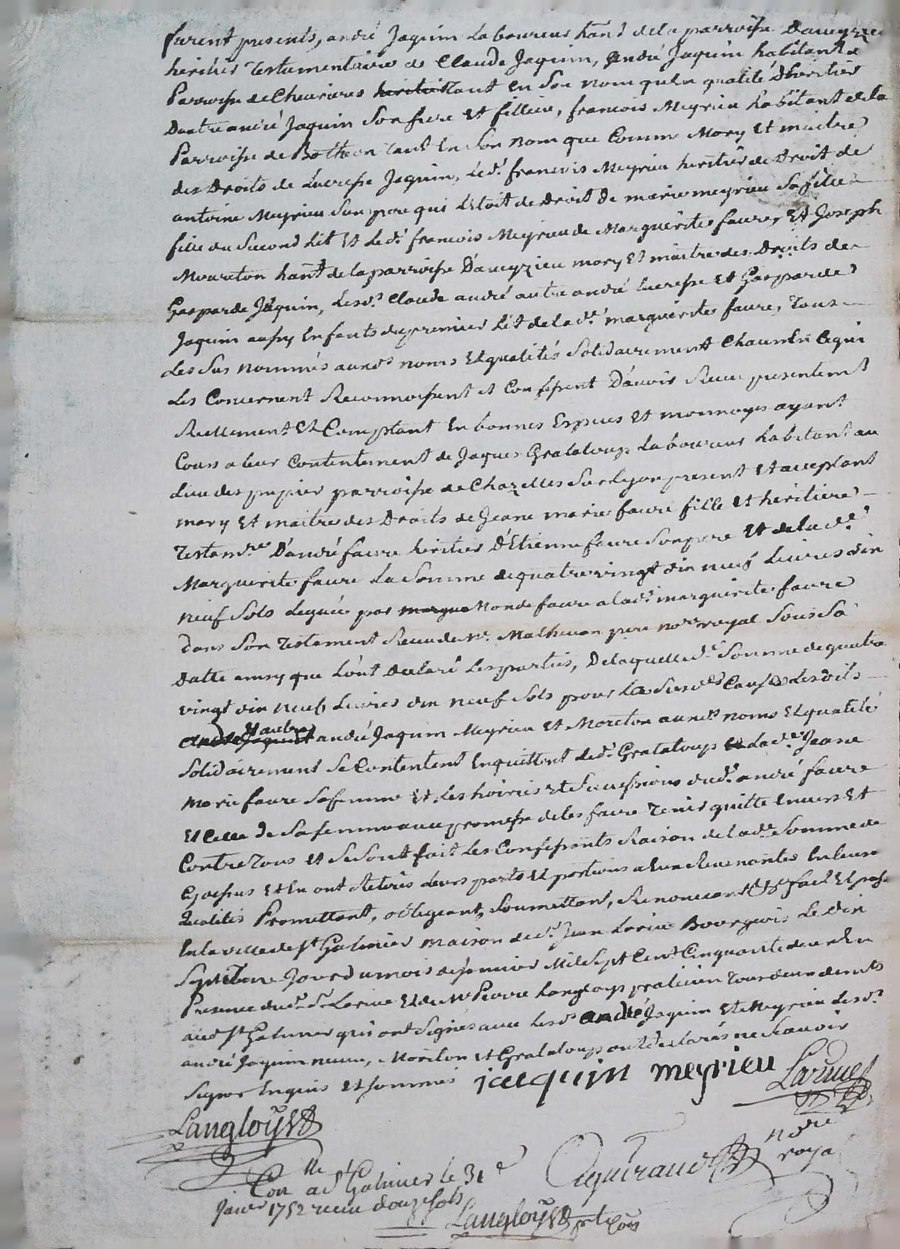 furent presents, andré Jaquin Laboureur hant de la parroisse Daveyzieu
heritier Testamentaire de Claude Jaquin, André Jaquin habitant de
Parroisse de Chevrieres heritier tant En Son nom qu'en qualité Dheritier
Dautre andré Jaquin Son frere Et filleu, francois Meyrieu habitant de la
Parroisse de Botheon tant En Son nom que Comme Mary Et maitre
des Droits de Lucresse Jaquin, Led. francois Meyrieu heritier de Droit de
antoine Meyrieu Son pere qui L'Etoit de Droit De marie meyrieu Sa fille
fille du Second Lit Et Led. francois Meyrieu de Marguerite faure, Et Joseph
Moureton hant de la parroisse D'aveyzieu mary Et maitre des Droits de
Gasparde Jaquin, Lesd. Claude andré autre andré Lucresse Et Gasparde
Jaquin aussy Enfants du premier Lit de lad. marguerite faure, Tous
Les Sus nommés auxd. noms Et qualités Solidairement Chacun En Ce qui
Les Concernent Reconnoissent et Confessent D'avoir Receu presentement
Reellement Et Comptant En bonnes Especes Et monnoyes ayant
Cours a leur Contentement de Jaques Grataloup Laboureur habitant au
Lieu des parroisse de Chazelles Sur Lyon present Et acceptant
mary Et maitre des Droits de Jeane marie faure fille Et heritiere
Testamre D'andré faure heritier D'Etienne faure Son pere Et de lad.
Marguerite faure La Somme de quatre vingt dix neuf Livres dix
neuf Sols Leguée par margue faure a lad. marguerite faure
dans Son Testament Receu de Me. Mathevon pere nore royal Sous Sa
datte ainsy que L'ont Declaré Les parties, De laquelle d. Somme de quatre
vingt dix neuf Livres dix neuf Sols pour les Susd. Causes Lesdits
Et autre
andre Jaquin andré Jaquin Meyrieu Et Moreton auxd. noms Et qualité
Solidairement Se Contentent En quittent led. Grataloup Et lad. Jeane
Marie faure Sa femme Et Les hoiries Et Successions dud. andré faure
Et Celle de Sa femme avec promesse de les faire Tenir quitte Envers Et
Contre Tous Et Se Sont fait Les Confessants Raison de lad. Somme de
Cy dessus Et En ont Retirés Leurs parts Et portions a Eux Revenantes En leurs
qualités Promettant, obligeant, Soumettant, Renoncant &c fait Et passé
En la ville de St Galmier maison de Sr. Jean Lorine Bourgeois Le dix
Septieme Jour du mois de Janvier Mil Sept Cent Cinquante deux En
Presence dud. Sr. Lorine Et de Me Pierre Langloys praticien Tous deux demts
aud. St Galmier qui ont Signés avec Lesd. andré Jaquin Et Meyrieu Lesd.
andré Jaquin neveu, Moreton et Grataloup ont declarés ne Scavoir
Signer Enquis Et Sommés jacquin meyrieu Lorine
Langloys
Aguiraud nore royal
Conllé a St Galmier le 31e
Janer 1752 receu douze sols
Langloys